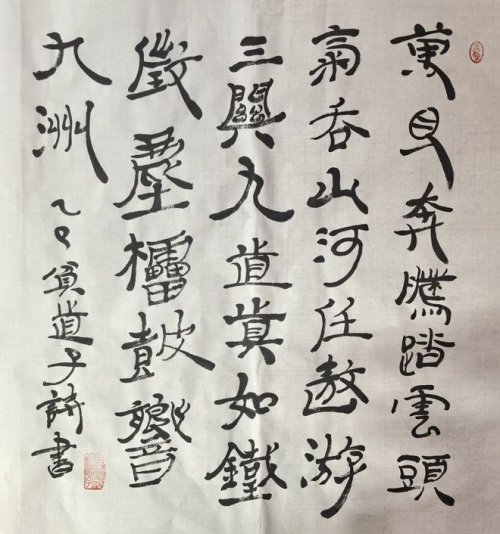 萬馬奔騰踏雲頭
氣吞山河任遨游
三關九道真如鐵
徵塵櫑皷響
九洲 乙巳 貧道子詩書